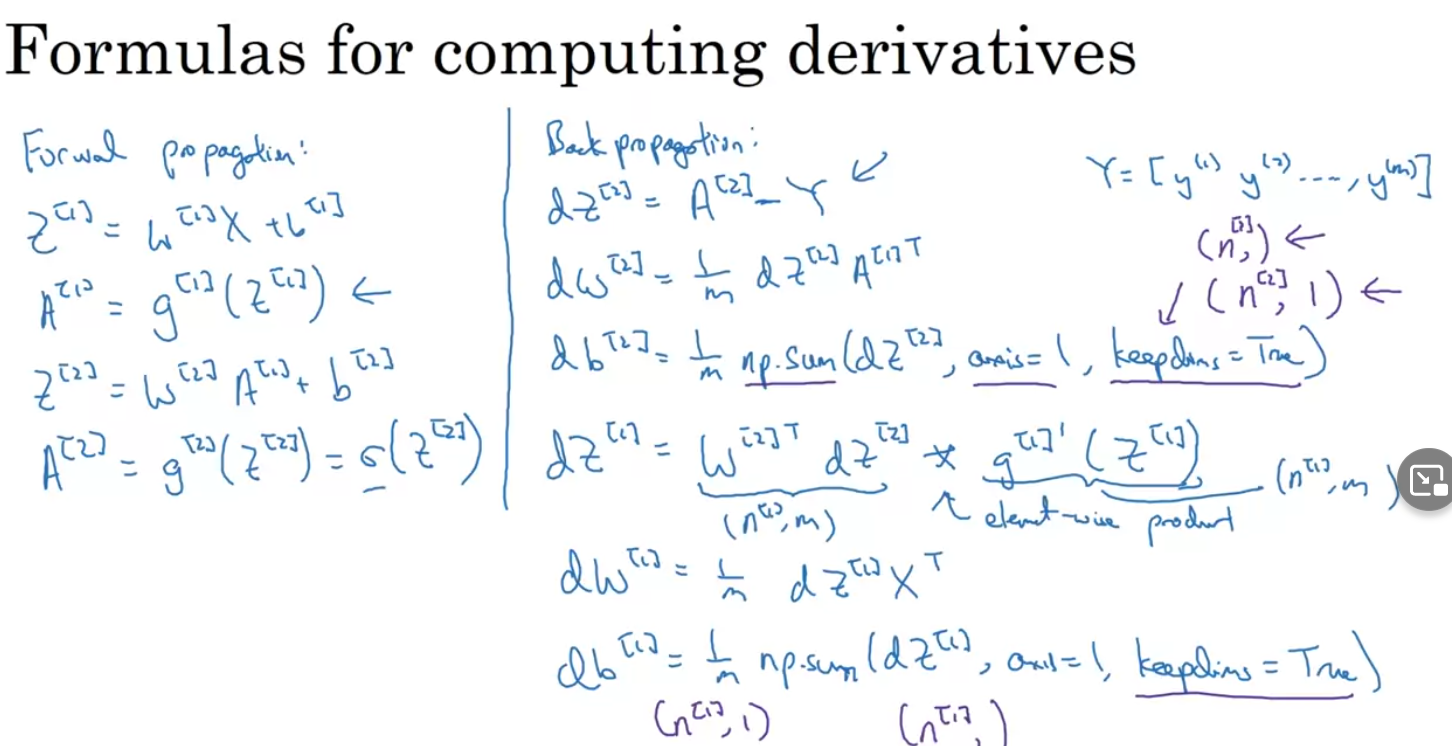 Formulas for computing derivatives
Forwal propagation:
Z^[1] = W^[1]X + b^[1]
A^[1] = g^[1](Z^[1]) ←
Z^[2] = W^[2] A^[1] + b^[2]
A^[2] = g^[2](Z^[2]) = σ(Z^[2])
Back propagation:
dZ^[2] = A^[2] - Y ↙
Y = [y^(1) y^(2) ...., y^(m)]
dW^[2] = 1/m dZ^[2] A^[1]T
(n^[2],) ←
↙ (n^[2], 1) ←
db^[2] = 1/m np.sum(dZ^[2], axis=1, keepdims=True)
dZ^[1] = W^[2]T dZ^[2] * g^[1]'(Z^[1])
(n^[1], m) ↖ element-wise product (n^[1], m)
dW^[1] = 1/m dZ^[1] X^T
db^[1] = 1/m np.sum(dZ^[1], axis=1, keepdims=True)
(n^[1], 1) (n^[1],)